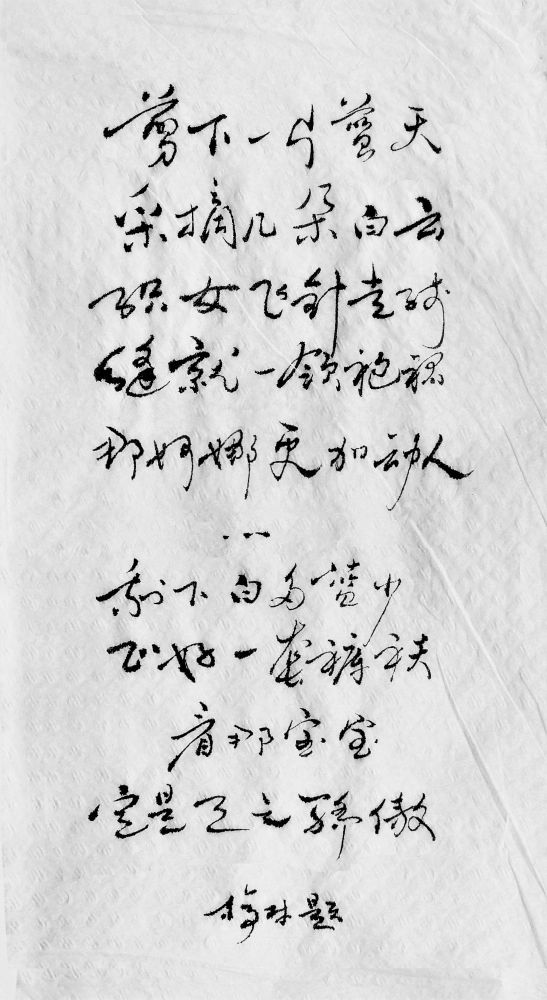 剪下一片蓝天
采摘几朵白云
织女飞针走线
缝就一领袍裙
那婀娜更加动人
...
剩下白多蓝少
正好一套裤袄
看那宝宝
定是天之骄傲
梅林题